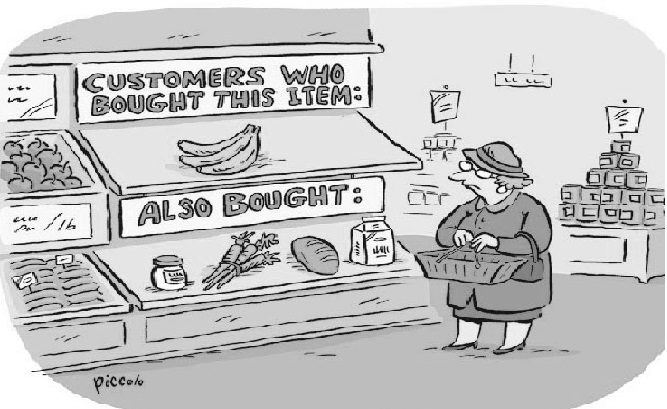 CUSTOMERS WHO
BOUGHT THIS ITEM:
ALSO BOUGHT:
piccolo